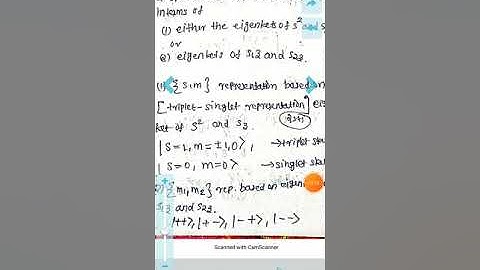 interms of
(1) either the eigenkets of S² and S
or
(2) eigenkets of S1z and S2z.
(1) {s,m} representation based on
[triplet-singlet representation] eige
ket of S² and Sz.
|S=1, m=±1,0>, →triplet sta
|S=0, m=0> →singlet stat
{m1,m2} rep. based on eigen
S1z and S2z.
|++>, |+->, |-+>, |-->
Scanned with CamScanner